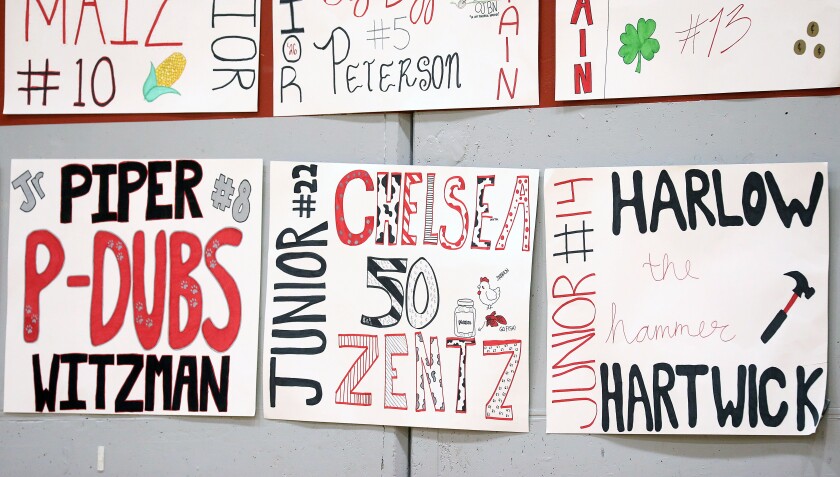 MAIZ
#10
IOR
#5
PETERSON
AIN
AIN
#13
Jr
PIPER
#8
P-DUBS
WITZMAN
JUNIOR #22
CHELSEA
50
ZENTZ
JUNIOR #14
HARLOW
the
hammer
HARTWICK